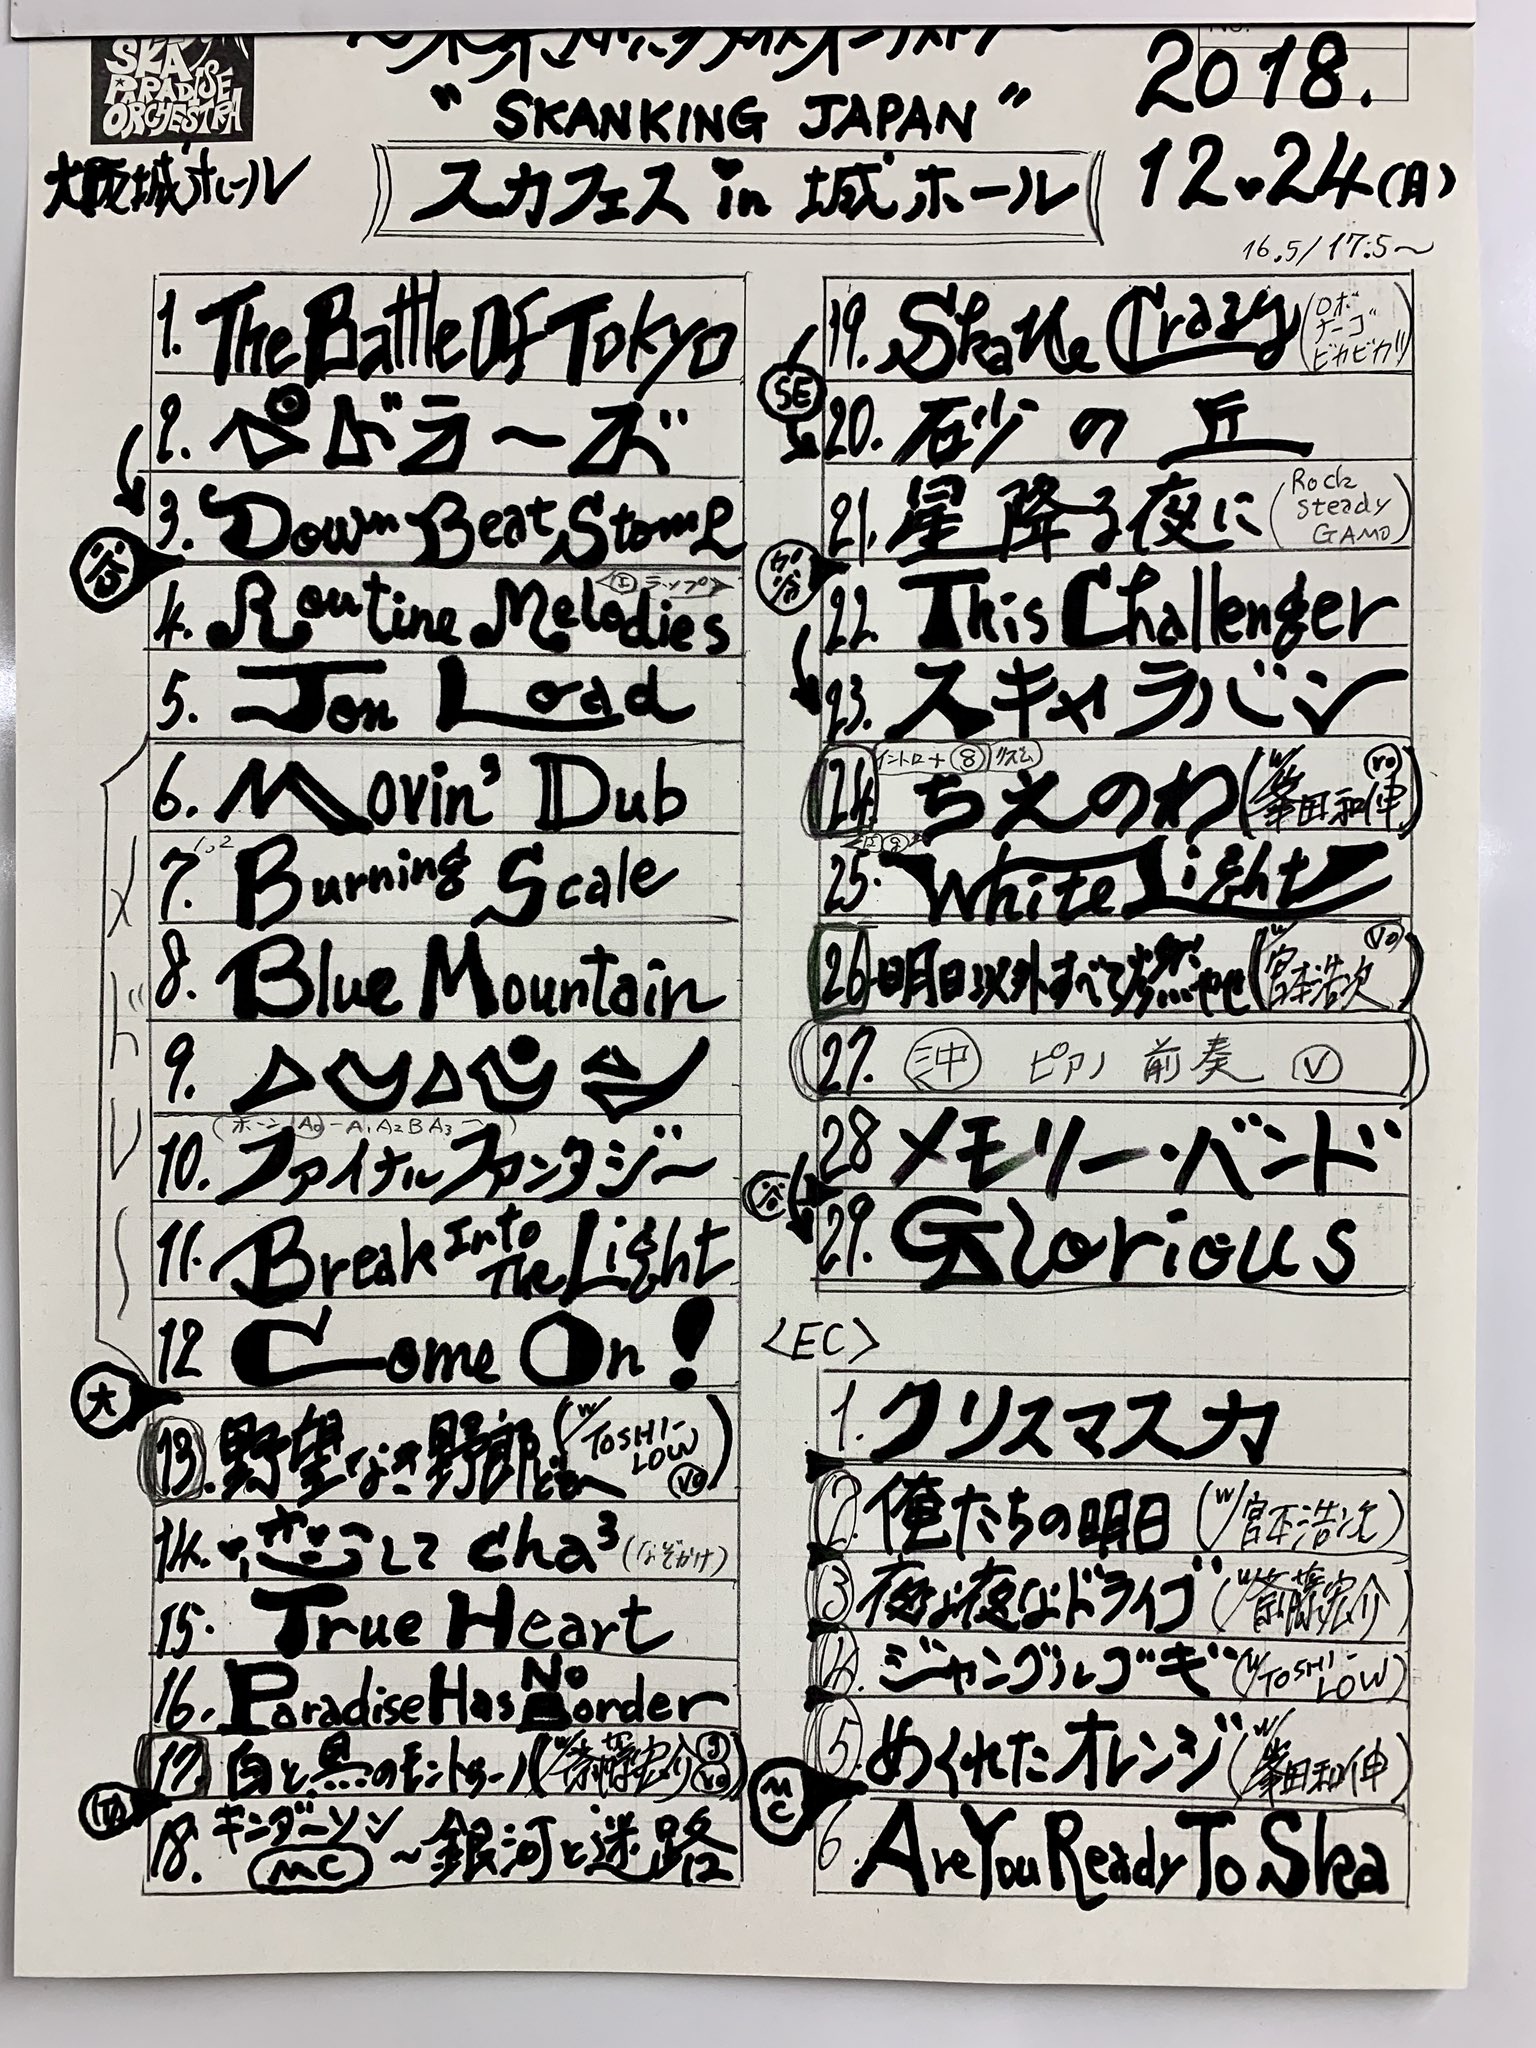 SKA
PARADISE
ORCHESTRA
"SKANKING JAPAN"
大阪城ホール
スカフェス in 城ホール
2018.
12.24(月)
16.5/17.5〜
1. The Battle Of Tokyo
2. ペドラーズ
3. Down Beat Stomp
谷
4. Routine Melodies
ラップ
5. Jon Lord
メドレー
6. Movin' Dub
7. Burning Scale
1,2
8. Blue Mountain
9.
(ホーン A0-A1 A2 B A3〜)
10. ファイナルファンタジー
11. Break Into The Light
12 Come On!
大
13. 野望なき野郎どもへ (w/TOSHI-LOW Vo)
14. 恋して cha3 (なぞかけ)
15. True Heart
16. Paradise Has No Border
17. 白と黒のモントゥーノ (w/斎藤宏介 Vo)
18. キンダーソン MC 〜銀河と迷路
19. Skatttle Crazy (ロボ ナーゴ ピカピカ)
SE
20. 砂の丘
21. 星降る夜に (Rock Steady GAMO)
22. This Challenger
23. スキャラバン
イントロ+⑧リズム
24. ちえのわ (w/峯田和伸 Vo)
25. White Light
26 明日以外すべて燃やせ (w/宮本浩次 Vo)
27. 沖 ピアノ 前奏 V
28 メモリー・バンド
谷
29. Glorious
<EC>
1. クリスマス力
2. 俺たちの明日 (w/宮本浩次)
3 夜な夜なドライブ (w/斎藤宏介)
4. ジャングルブギ (w/TOSHI-LOW)
5 めくれたオレンジ (w/峯田和伸)
MC
6. Are You Ready To Ska